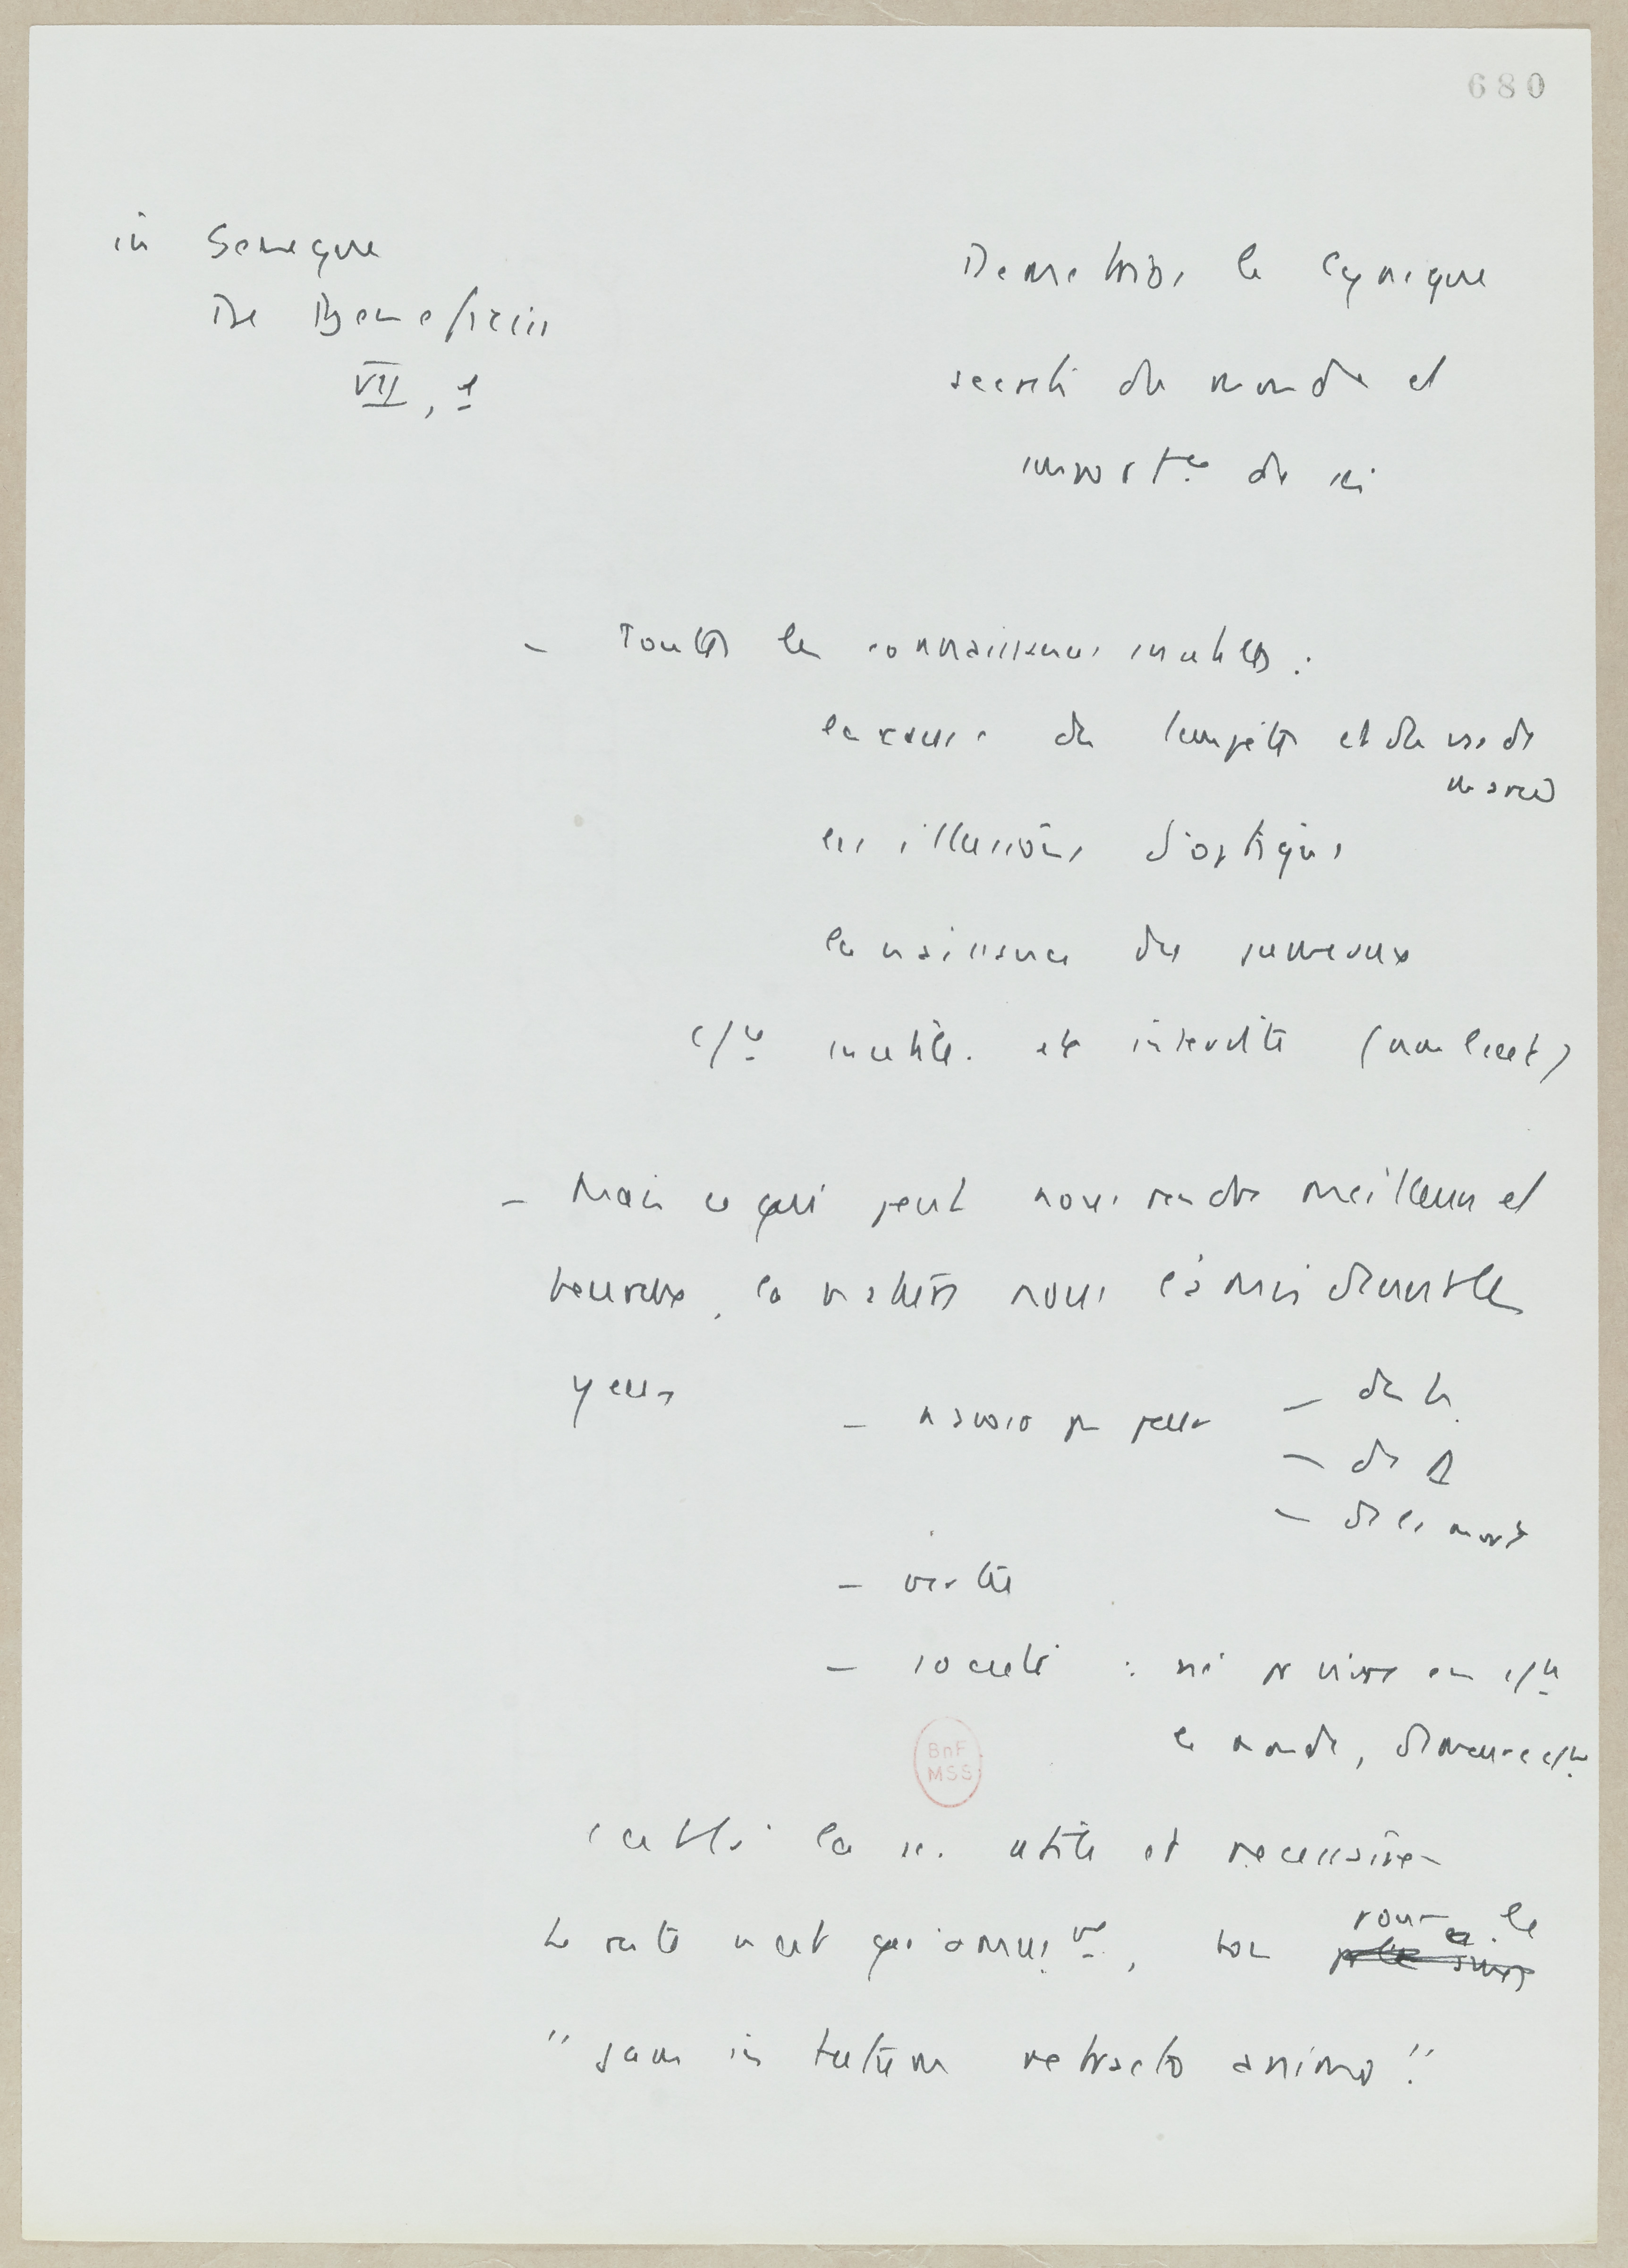 680
in Seneque
De Beneficiis
VII, 1
Demetrios le Cynique
secrets du monde et
import^ce de soi
- Toutes les connaissances inutiles :
la cause des tempêtes et du vx des
marées
les illusions d'optique
la naissance des jumeaux
c/^e inutile. et interdite (non licet)
- Mais ce qui peut nous rendre meilleurs et
heureux, la nature nous l'a mis devant les
yeux
- n'avoir pas peur
- des h.
- des D
- de la mort
- vertu
- société : né pr vivre en c/^té
le monde, demeure c/^e
BnF
MSS
la sc. utile et necessaire
Le reste n'est qu'amus^nt, bon pour
"jam in tutum retracto animo".